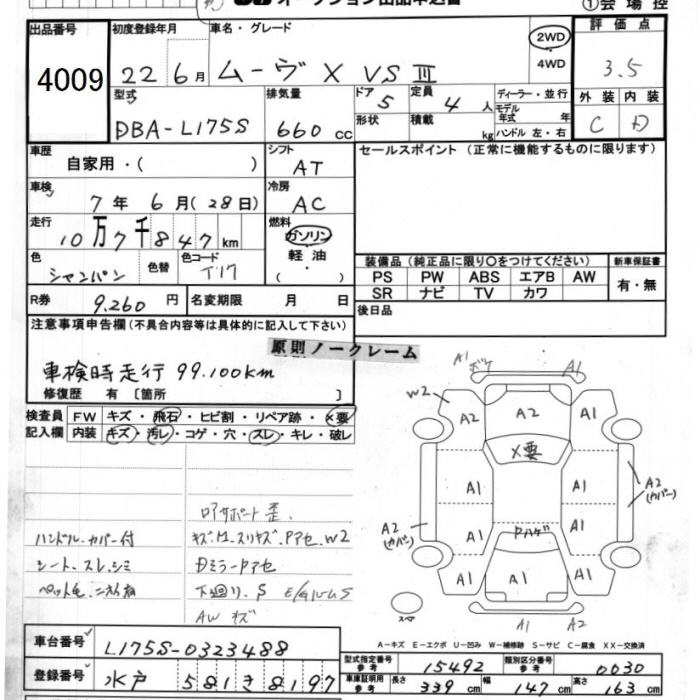 ①会場控
出品番号
4009
初度登録年月
22 6月
車名・グレード
ムーヴ X VS Ⅲ
2WD
・
4WD
評価点
3.5
型式
DBA-L175S
排気量
660 cc
ドア
5
定員
4 人
形状
積載
kg
ディーラー・並行
モデル年式 年
ハンドル 左・右
外装
C
内装
D
車歴
自家用・( )
シフト
AT
車検
7年 6月(28日)
冷房
AC
走行
10万7千847km
燃料
ガソリン
・
軽油
( )
色
シャンパン
色替
色コード
T17
R券
9,260円
名変期限 月 日
セールスポイント (正常に機能するものに限ります)
装備品 (純正品に限り○をつけてください)
PS PW ABS エアB AW
SR ナビ TV カワ
新車保証書
有・無
後日品
注意事項申告欄(不具合内容等は具体的に記入して下さい)
車検時走行 99.100km
修復歴 有 〔箇所 〕
原則ノークレーム
検査員記入欄
FW キズ・飛石・ヒビ割・リペア跡・×要
内装 キズ・汚レ・コゲ・穴・スレ・キレ・破レ
ハンドル・カバー付
シート・スレ・シミ
下廻り.S
AW キズ
A1 A1
W2
A2 A2 A1
×要
A1 A1
A2 (カバー)
A1 A1
A2 (カバー)
Pハゲ
A1 A1
A1 A2
スペア
A-キズ E-エクボ U-凹み W-補修跡 S-サビ C-腐食 XX-交換済
車台番号
L175S-0323488
登録番号
水戸 581 き 8197
型式指定番号 参考
15492
類別区分番号 参考
0030
車庫証明用 参考
長さ 339 cm
幅 147 cm
高さ 163 cm